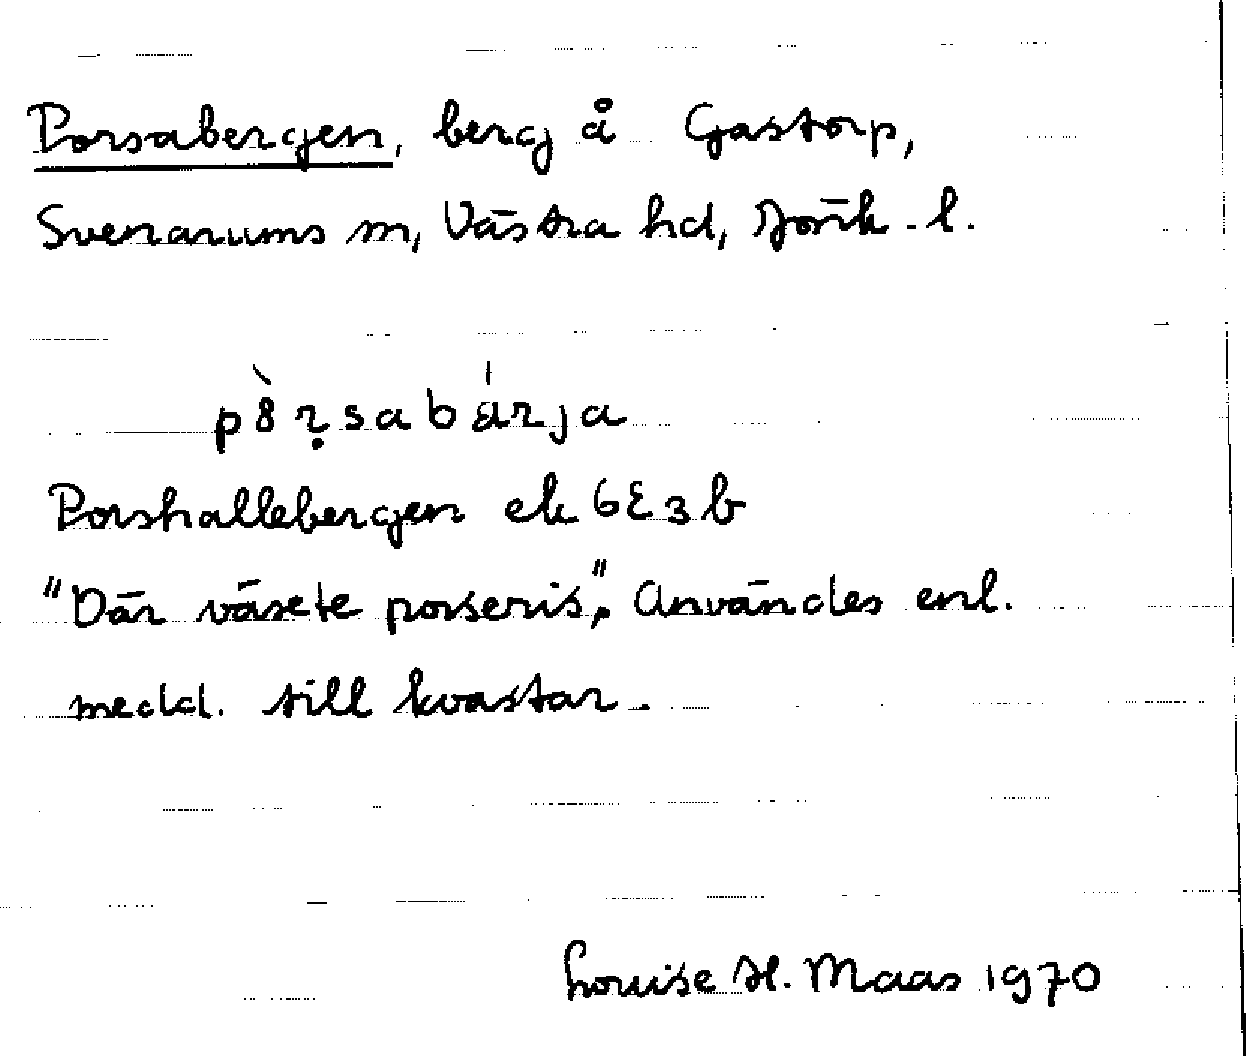 Porsabergen, berg å Gastorp,
Svenarums sn, Västra hd, Jönk. l.
pȍr̩sabárja
Porshallebergen ek 6E3b
"Där växete porseris". Användes enl.
medd. till kvastar.
Louise H. Maas 1970